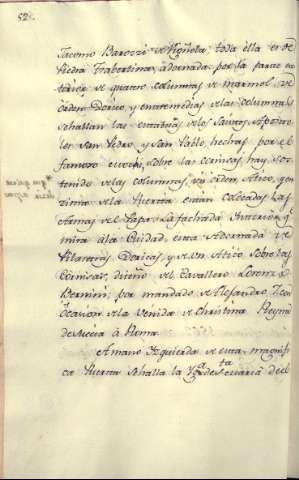 52.
Jacomo Barozzi de Vigñola: toda ella es de
Piedra Trabertina, adornada por la parte ex
terior de quatro columnas de marmol de
orden Dorico, y entremedias de las columnas
se hallan las estatuas de los Santos Apostò
les San Pedro, y San Pablo, hechas por el
famoso sobre las cornisas, hay, sos
tenido de las columnas, un orden Atico, y en
zima de la Puerta estan colocadas las
Armas de el Papa. La fachada Interior, q
mira a la Ciudad, esta Adornada de
Pilastras Doricas, y de un Atico sobre las
Cornisas, diseño del Cavallero Lorenzo
Bernini, por mandado de Alejandro 7. con
Ocasion de la Venida de Christina Reyna
de Suecia à Roma.
A mano Izquierda de esta magnifi
ca Puerta se halla la Ygª de Sta Maria del